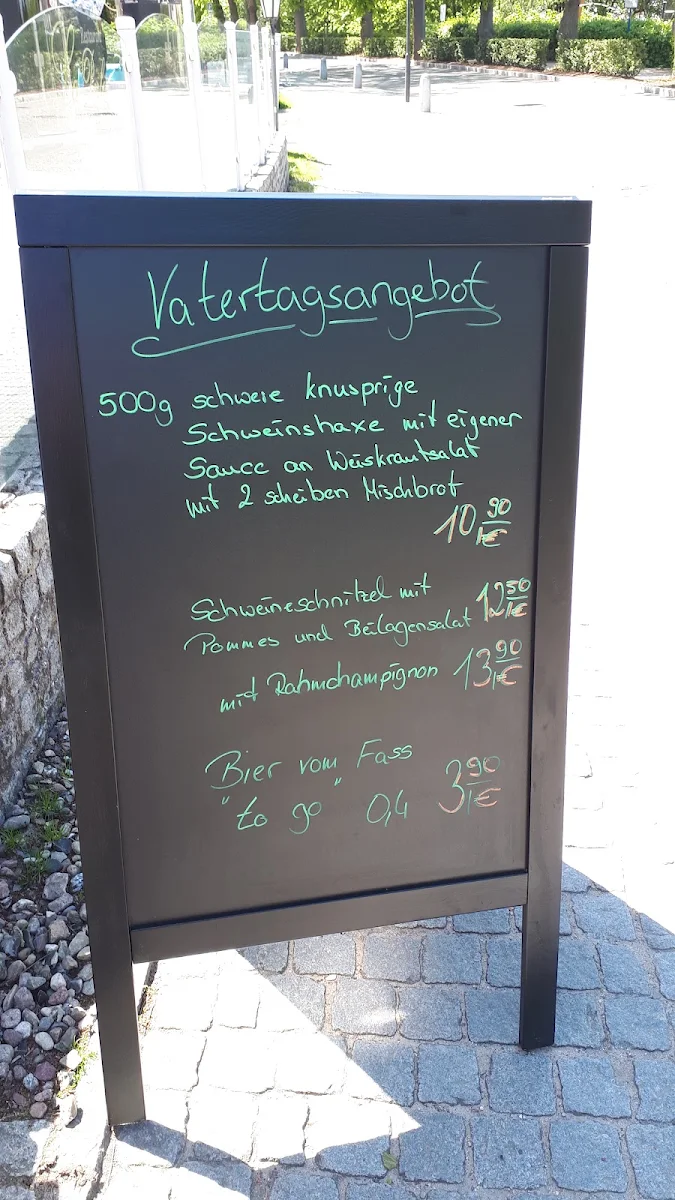 Vatertagsangebot
500g schweie knusprige
Schweinshaxe mit eigener
Sauce an Weiskrautsalat
mit 2 scheiben Mischbrot
10,90 €
Schweineschnitzel mit 12,50 €
Pommes und Beilagensalat
mit Rahmchampignon 13,90 €
Bier vom Fass
"to go" 0,4 3,90 €